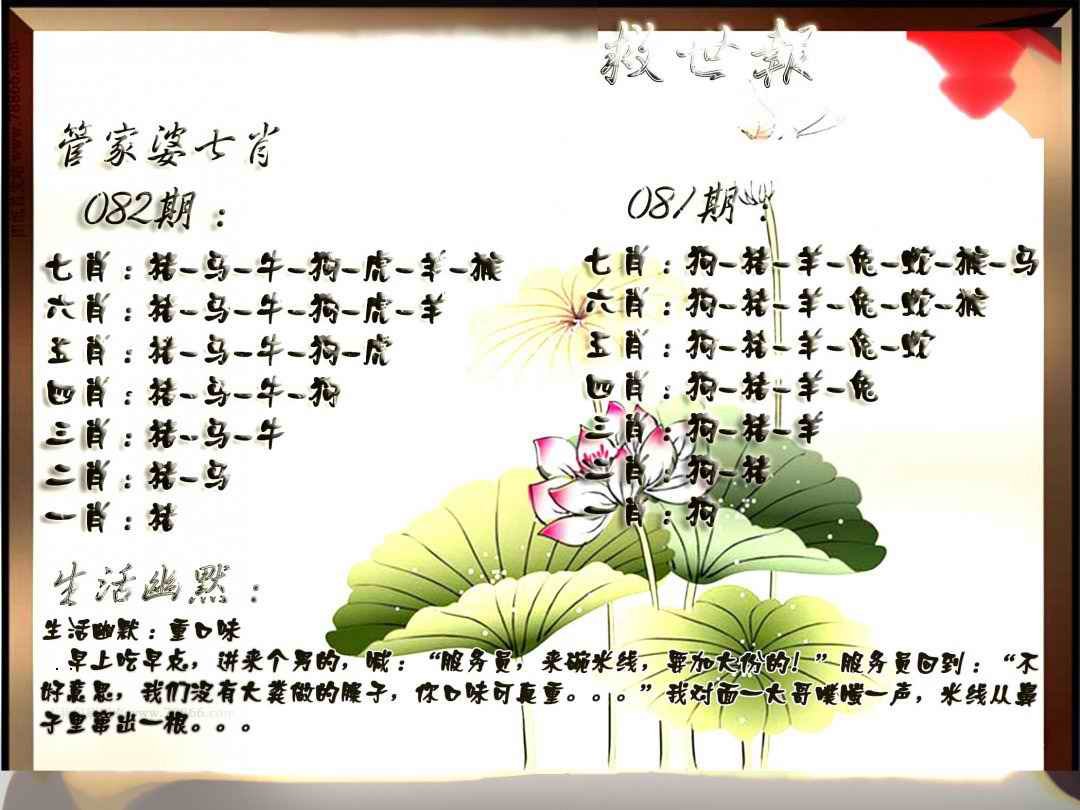 救世報
管家婆七肖
082期：
七肖：猪-马-牛-狗-虎-羊-猴
六肖：猪-马-牛-狗-虎-羊
五肖：猪-马-牛-狗-虎
四肖：猪-马-牛-狗
三肖：猪-马-牛
二肖：猪-马
一肖：猪
081期：
七肖：狗-猪-羊-兔-蛇-猴-马
六肖：狗-猪-羊-兔-蛇-猴
五肖：狗-猪-羊-兔-蛇
四肖：狗-猪-羊-兔
三肖：狗-猪-羊
二肖：狗-猪
一肖：狗
生活幽默：
生活幽默：重口味
．早上吃早点，进来个男的，喊：“服务员，来碗米线，要加大份的！”服务员回到：“不
好意思，我们没有大粪做的臊子，你口味可真重。。。”我对面一大哥噗嗤一声，米线从鼻
子里窜出一根。。。